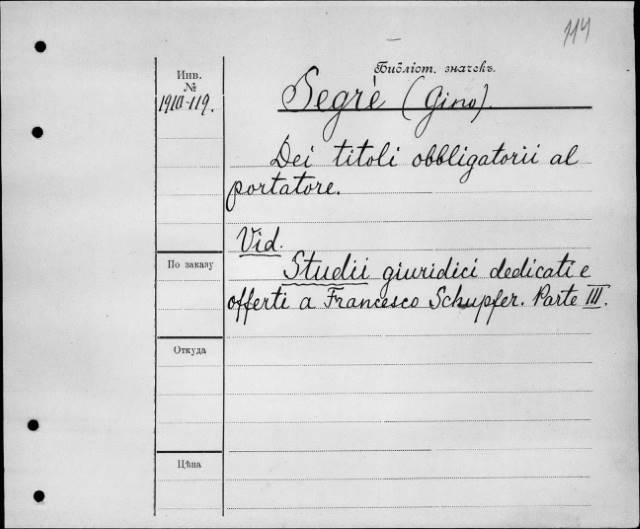 114
Библіот. значекъ.
Инв.
№
1910-119.
Segrè (Gino).
Dei titoli obbligatorii al
portatore.
Vid.
Studii giuridici dedicati e
offerti a Francesco Schupfer. Parte III.
По заказу
Откуда
Цѣна